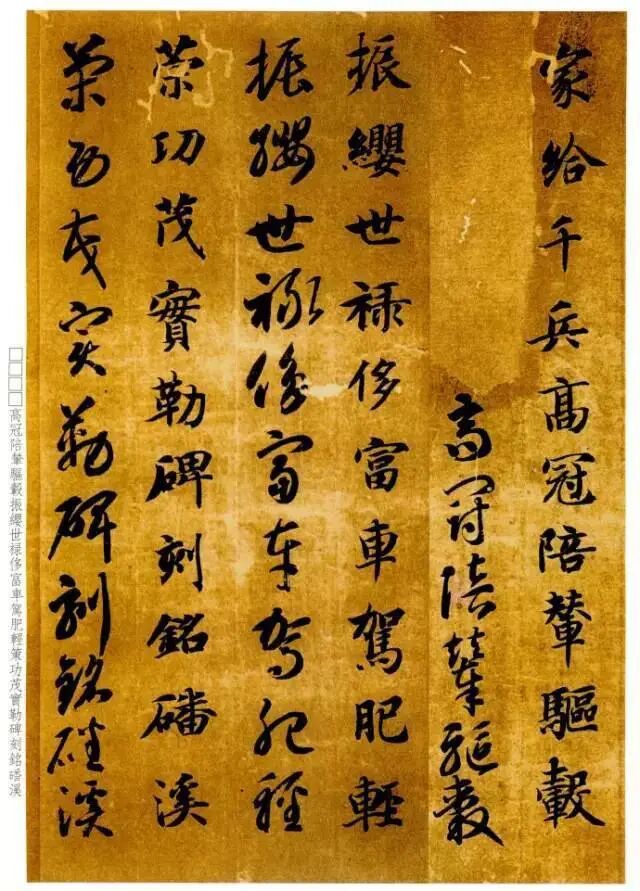 家給千兵高冠陪輦驅轂
高冠陪輦驅轂
振纓世禄侈富車駕肥輕
振纓世禄侈富車駕肥輕
策功茂實勒碑刻銘磻溪
策功茂實勒碑刻銘磻溪
□□□□高冠陪輦驅轂振纓世禄侈富車駕肥輕策功茂實勒碑刻銘磻溪